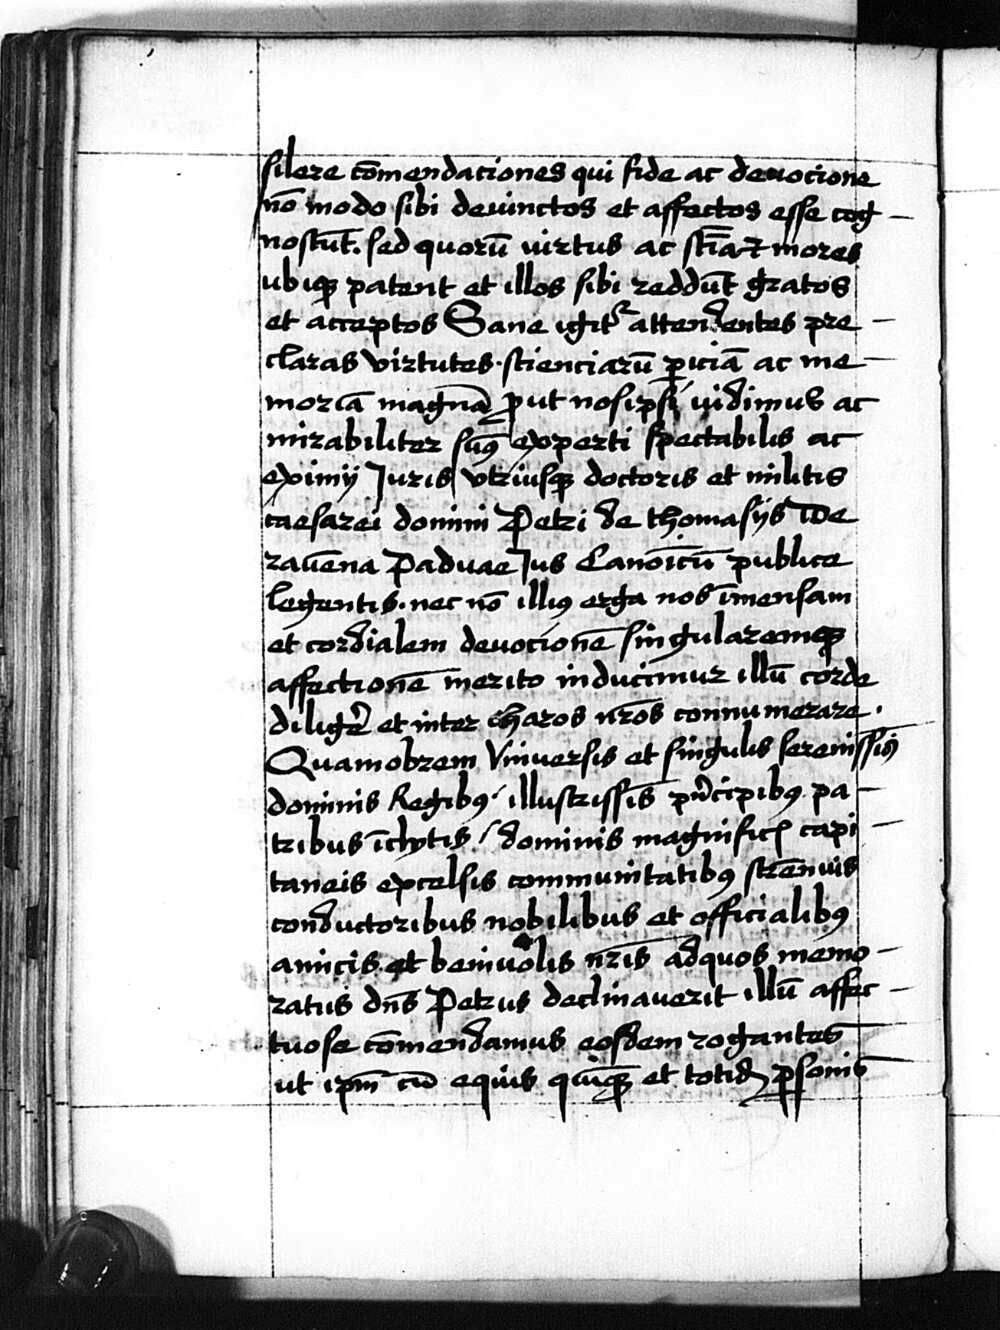 silere cōmendaciones qui fide ac deuocione
nō modo sibi deuinctos et affectos esse cog
noscūt. sed quorū uirtus ac sciaꝝ mores
ubiqꝫ patent et illos sibi reddūt gratos
et acceptos Sane igitr attendentes pre
claras virtutes. scienciarū ꝑiciā ac me
moria magnā ꝓut nosipsi uidimus ac
mirabiliter sumꝰ experti spectabilis ac
eximij Juris vtriusqꝫ doctoris et militis
caesarei domini Petri de thomasijs de
rauēna Paduae Jus Canoīcū publice
legentis. nec nō illiꝰ erga nos īmensam
et cordialem deuocionē singularemqꝫ
affectionē merito inducimur illū corde
diligē et inter charos nr̄os connumerare.
Quamobrem Vniuersis et singulis serenissīs
dominis Regibꝰ illustrissīs prīcipibꝰ pa
tribus īclytis / dominis magnificis capi
taneis excelsis communitatibꝰ strēnuis
conductoribus nobilibus et officialibꝰ
amicis et beniuolis nr̄is adquos memo
ratus dn̄s Petrus declinauerit illū affec
tuose cōmendamus eosdem rogantes
ut ipm̄ cū equis quīqꝫ et totidē ꝑsonis